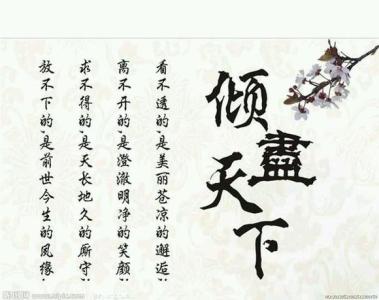 倾盡天下
看不透的,是美丽苍凉的邂逅
离不开的,是澄澈明净的笑颜
求不得的,是天长地久的厮守
放不下的,是前世今生的夙缘
昵图网 www.nipic.com